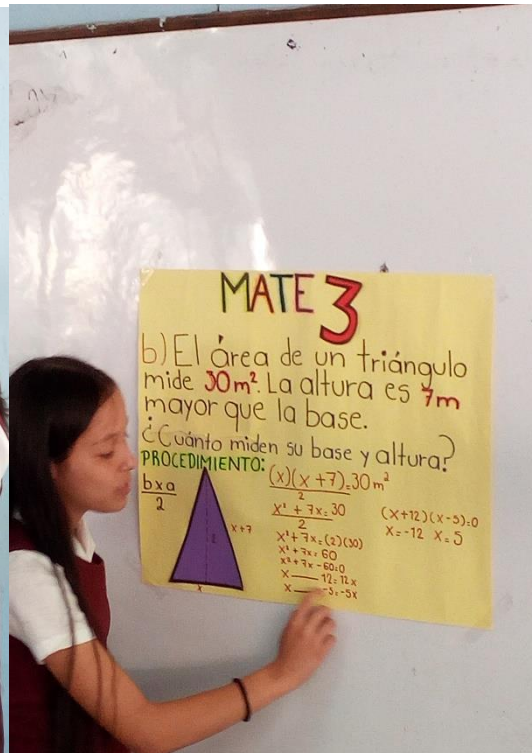 MATE 3
b) El área de un triángulo
mide 30m². La altura es 7m
mayor que la base.
¿Cuánto miden su base y altura?
PROCEDIMIENTO:
bxa
2
x+7
x
(x)(x+7)=30m²
2
x² + 7x=30
2
x²+7x=(2)(30)
x²+7x=60
x²+7x-60=0
x 12=12x
x -5=-5x
(x+12)(x-5)=0
x=-12 x=5